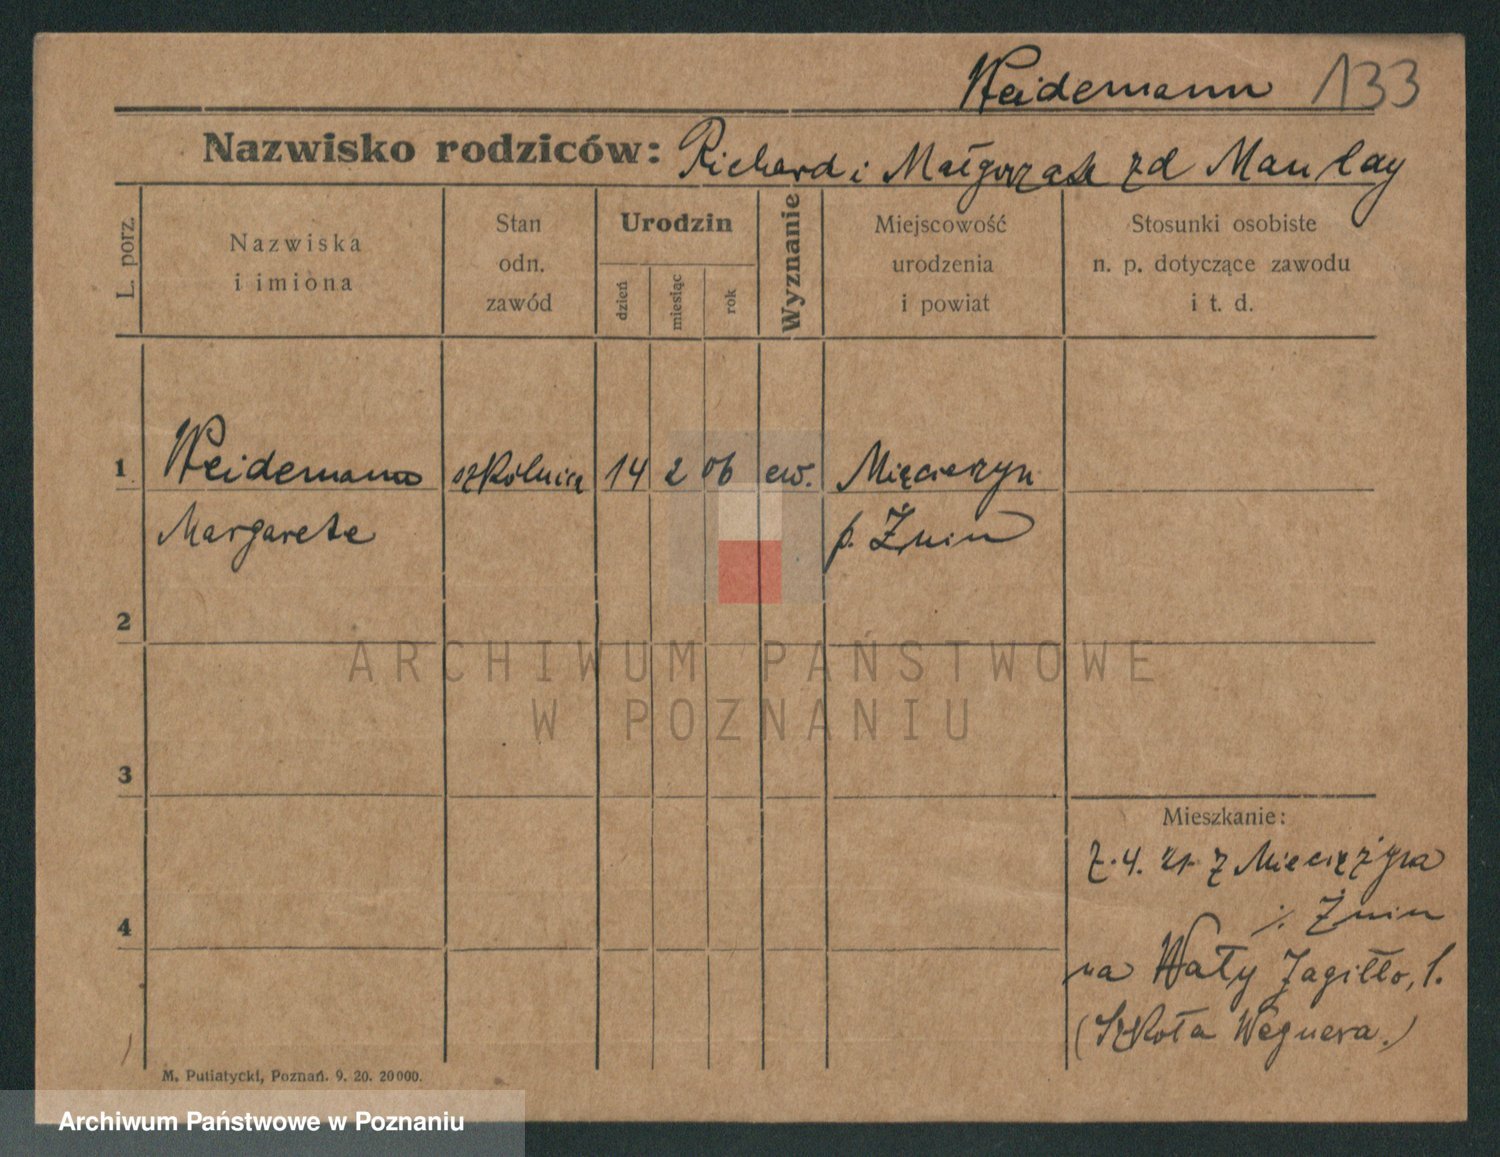 Weidemann 133
Nazwisko rodziców: Richard i Małgorzata zd
L. porz.
Nazwiska
i imiona
Stan
odn.
zawód
Urodzin
dzień
miesiąc
rok
Wyznanie
Miejscowość
urodzenia
i powiat
Stosunki osobiste
n. p. dotyczące zawodu
i t. d.
1 Weidemann szkólnica 14 2 06 ew. Mięcierzyn
Margarete p. Żnin
2
3
4
Mieszkanie:
z Mięcierzyna
Żnin
na Wały Jagiełło, 1.
(Szkoła Wegnera.)
M. Putiatycki, Poznań. 9. 20. 20000.
ARCHIWUM PAŃSTWOWE
W POZNANIU
Archiwum Państwowe w Poznaniu